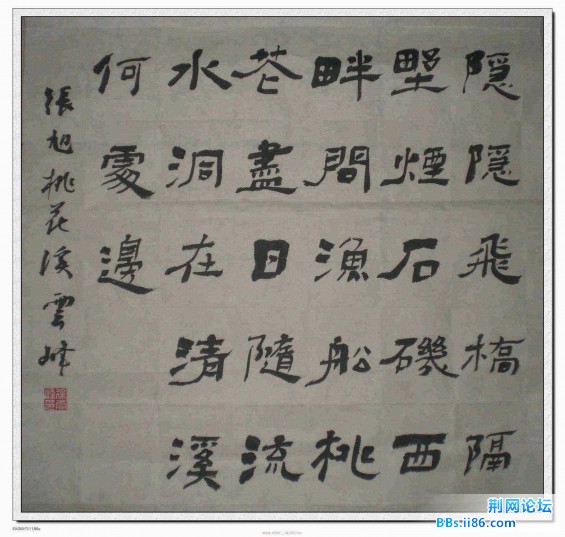 隱隱飛橋隔
野煙石磯西
畔問漁船桃
花盡日隨流
水洞在清溪
何處邊
張旭桃花溪雲峰
荆网论坛
BBs.ii86.com